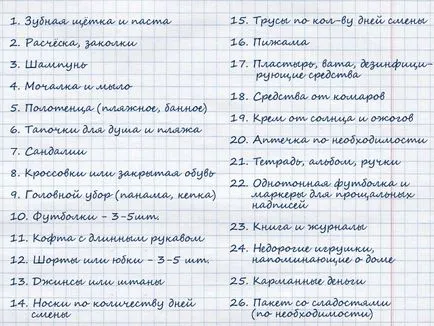 1. Зубная щётка и паста
2. Расчёска, заколки
3. Шампунь
4. Мочалка и мыло
5. Полотенца (пляжное, банное)
6. Тапочки для душа и пляжа
7. Сандалии
8. Кроссовки или закрытая обувь
9. Головной убор (панама, кепка)
10. Футболки - 3-5шт.
11. Кофта с длинным рукавом
12. Шорты или юбки - 3-5 шт.
13. Джинсы или штаны
14. Носки по количеству дней
смены
15. Трусы по кол-ву дней смены
16. Пижама
17. Пластырь, вата, дезинфици-
рующие средства
18. Средства от комаров
19. Крем от солнца и ожогов
20. Аптечка по необходимости
21. Тетрадь, альбом, ручки
22. Однотонная футболка и
маркеры для прощальных
надписей
23. Книга и журналы
24. Недорогие игрушки,
напоминающие о доме
25. Карманные деньги
26. Пакет со сладостями
(по необходимости)